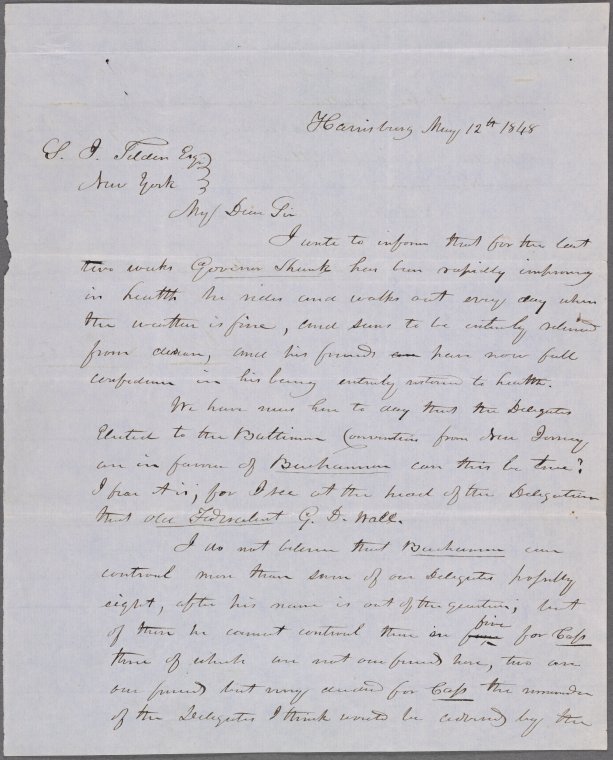 Harrisburg May 12th 1848
S. J. Tilden Esqr
New York
My Dear Sir
I write to inform that for the last
two weeks Govinor Shunk has been rapidly improving
in health he rides and walks out evry day when
the weather is fine, and seems to be entirely relieved
from disease, and his friends have now full
confidence in his being entirely restored to health.
We have news here to day that the Delegates
Elected to the Baltimore Convention from New Jersey
are in favour of Buchannon can this be true?
I fear it is, for I see at the head of the Delegation
that old Federalist G. D. Wall.
I do not believe that Buchannon can
controul more than seven of our Delegates
eight, after his name is out of the question; but
of these he cannot controul there is five for Cass
three of which are not our friends here, two are
our friends but very decided for Cass the remainder
of the Delegates I think would be advised by the